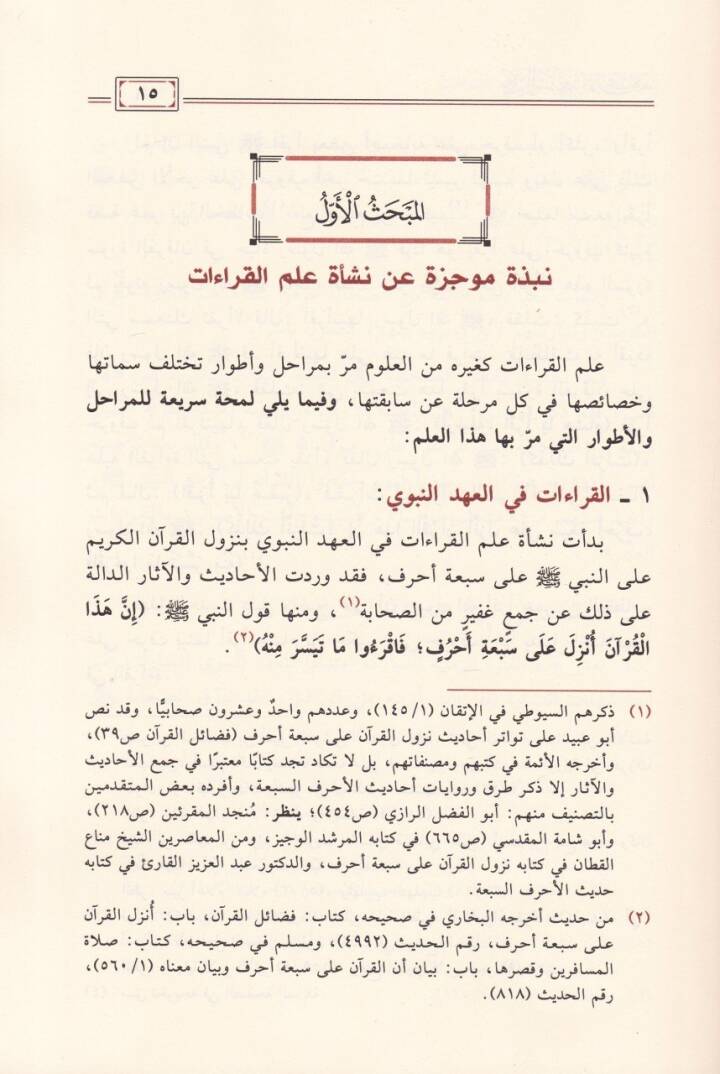 ١٥
المَبْحَثُ الأَوَّلُ
نبذة موجزة عن نشأة علم القراءات
علم القراءات كغيره من العلوم مرّ بمراحل وأطوار تختلف سماتها
وخصائصها في كل مرحلة عن سابقتها، وفيما يلي لمحة سريعة للمراحل
والأطوار التي مرّ بها هذا العلم:
١ ـ القراءات في العهد النبوي:
بدأت نشأة علم القراءات في العهد النبوي بنزول القرآن الكريم
على النبي ﷺ على سبعة أحرف، فقد وردت الأحاديث والآثار الدالة
على ذلك عن جمعٍ غفيرٍ من الصحابة(١)، ومنها قول النبي ﷺ: (إِنَّ هَذَا
الْقُرْآنَ أُنْزِلَ عَلَى سَبْعَةِ أَحْرُفٍ؛ فَاقْرَءُوا مَا تَيَسَّرَ مِنْهُ)(٢).
(١) ذكرهم السيوطي في الإتقان (١/ ١٤٥)، وعددهم واحدٌ وعشرون صحابيًّا، وقد نص
أبو عبيد على تواتر أحاديث نزول القرآن على سبعة أحرف (فضائل القرآن ص٣٩)،
وأخرجه الأئمة في كتبهم ومصنفاتهم، بل لا تكاد تجد كتابًا معتبرًا في جمع الأحاديث
والآثار إلا ذكر طرق وروايات أحاديث الأحرف السبعة، وأفرده بعض المتقدمين
بالتصنيف منهم: أبو الفضل الرازي (ص٤٥٤)؛ ينظر: مُنجد المقرئين (ص٢١٨)،
وأبو شامة المقدسي (ص٦٦٥) في كتابه المرشد الوجيز، ومن المعاصرين الشيخ مناع
القطان في كتابه نزول القرآن على سبعة أحرف، والدكتور عبد العزيز القارئ في كتابه
حديث الأحرف السبعة.
(٢) من حديث أخرجه البخاري في صحيحه، كتاب: فضائل القرآن، باب: أُنزل القرآن
على سبعة أحرف، رقم الحديث (٤٩٩٢)، ومسلم في صحيحه، كتاب: صلاة
المسافرين وقصرها، باب: بيان أن القرآن على سبعة أحرف وبيان معناه (١/ ٥٦٠)،
رقم الحديث (٨١٨).